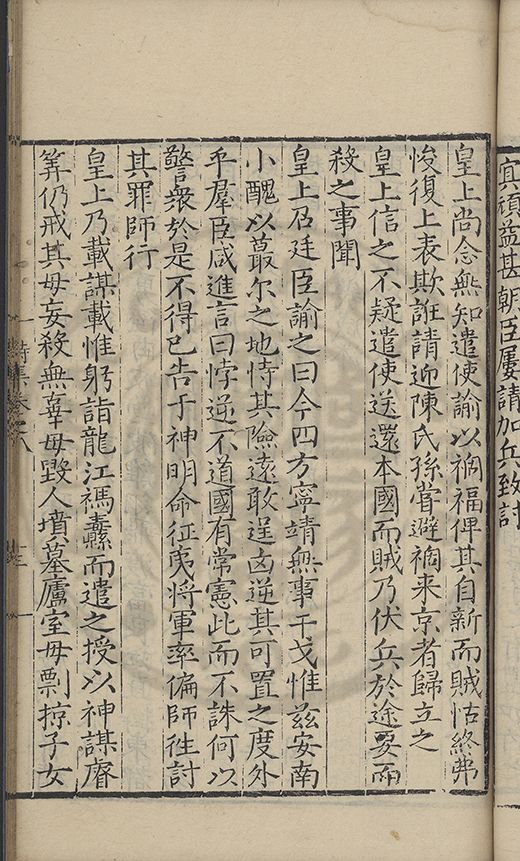 寘頑益甚朝臣屢請加兵致討
皇上尚念無知遣使諭以禍福俾其自新而賊怙終弗
悛復上表欺誑請迎陳氏孫嘗避禍来京者歸立之
皇上信之不疑遣使送還本國而賊乃伏兵於途要而
殺之事聞
皇上召廷臣諭之曰今四方寧靖無事干戈惟兹安南
小醜以蕞尔之地恃其險遠敢逞凶逆其可置之度外
乎羣臣咸進言曰悖逆不道國有常憲此而不誅何以
警衆於是不得已告于神明命征夷将軍率偏師徃討
其罪師行
皇上乃載謀載惟躬詣龍江禡纛而遣之授以神謀睿
筭仍戒其毋妄殺無辜毋毀人墳墓廬室毋剽掠子女